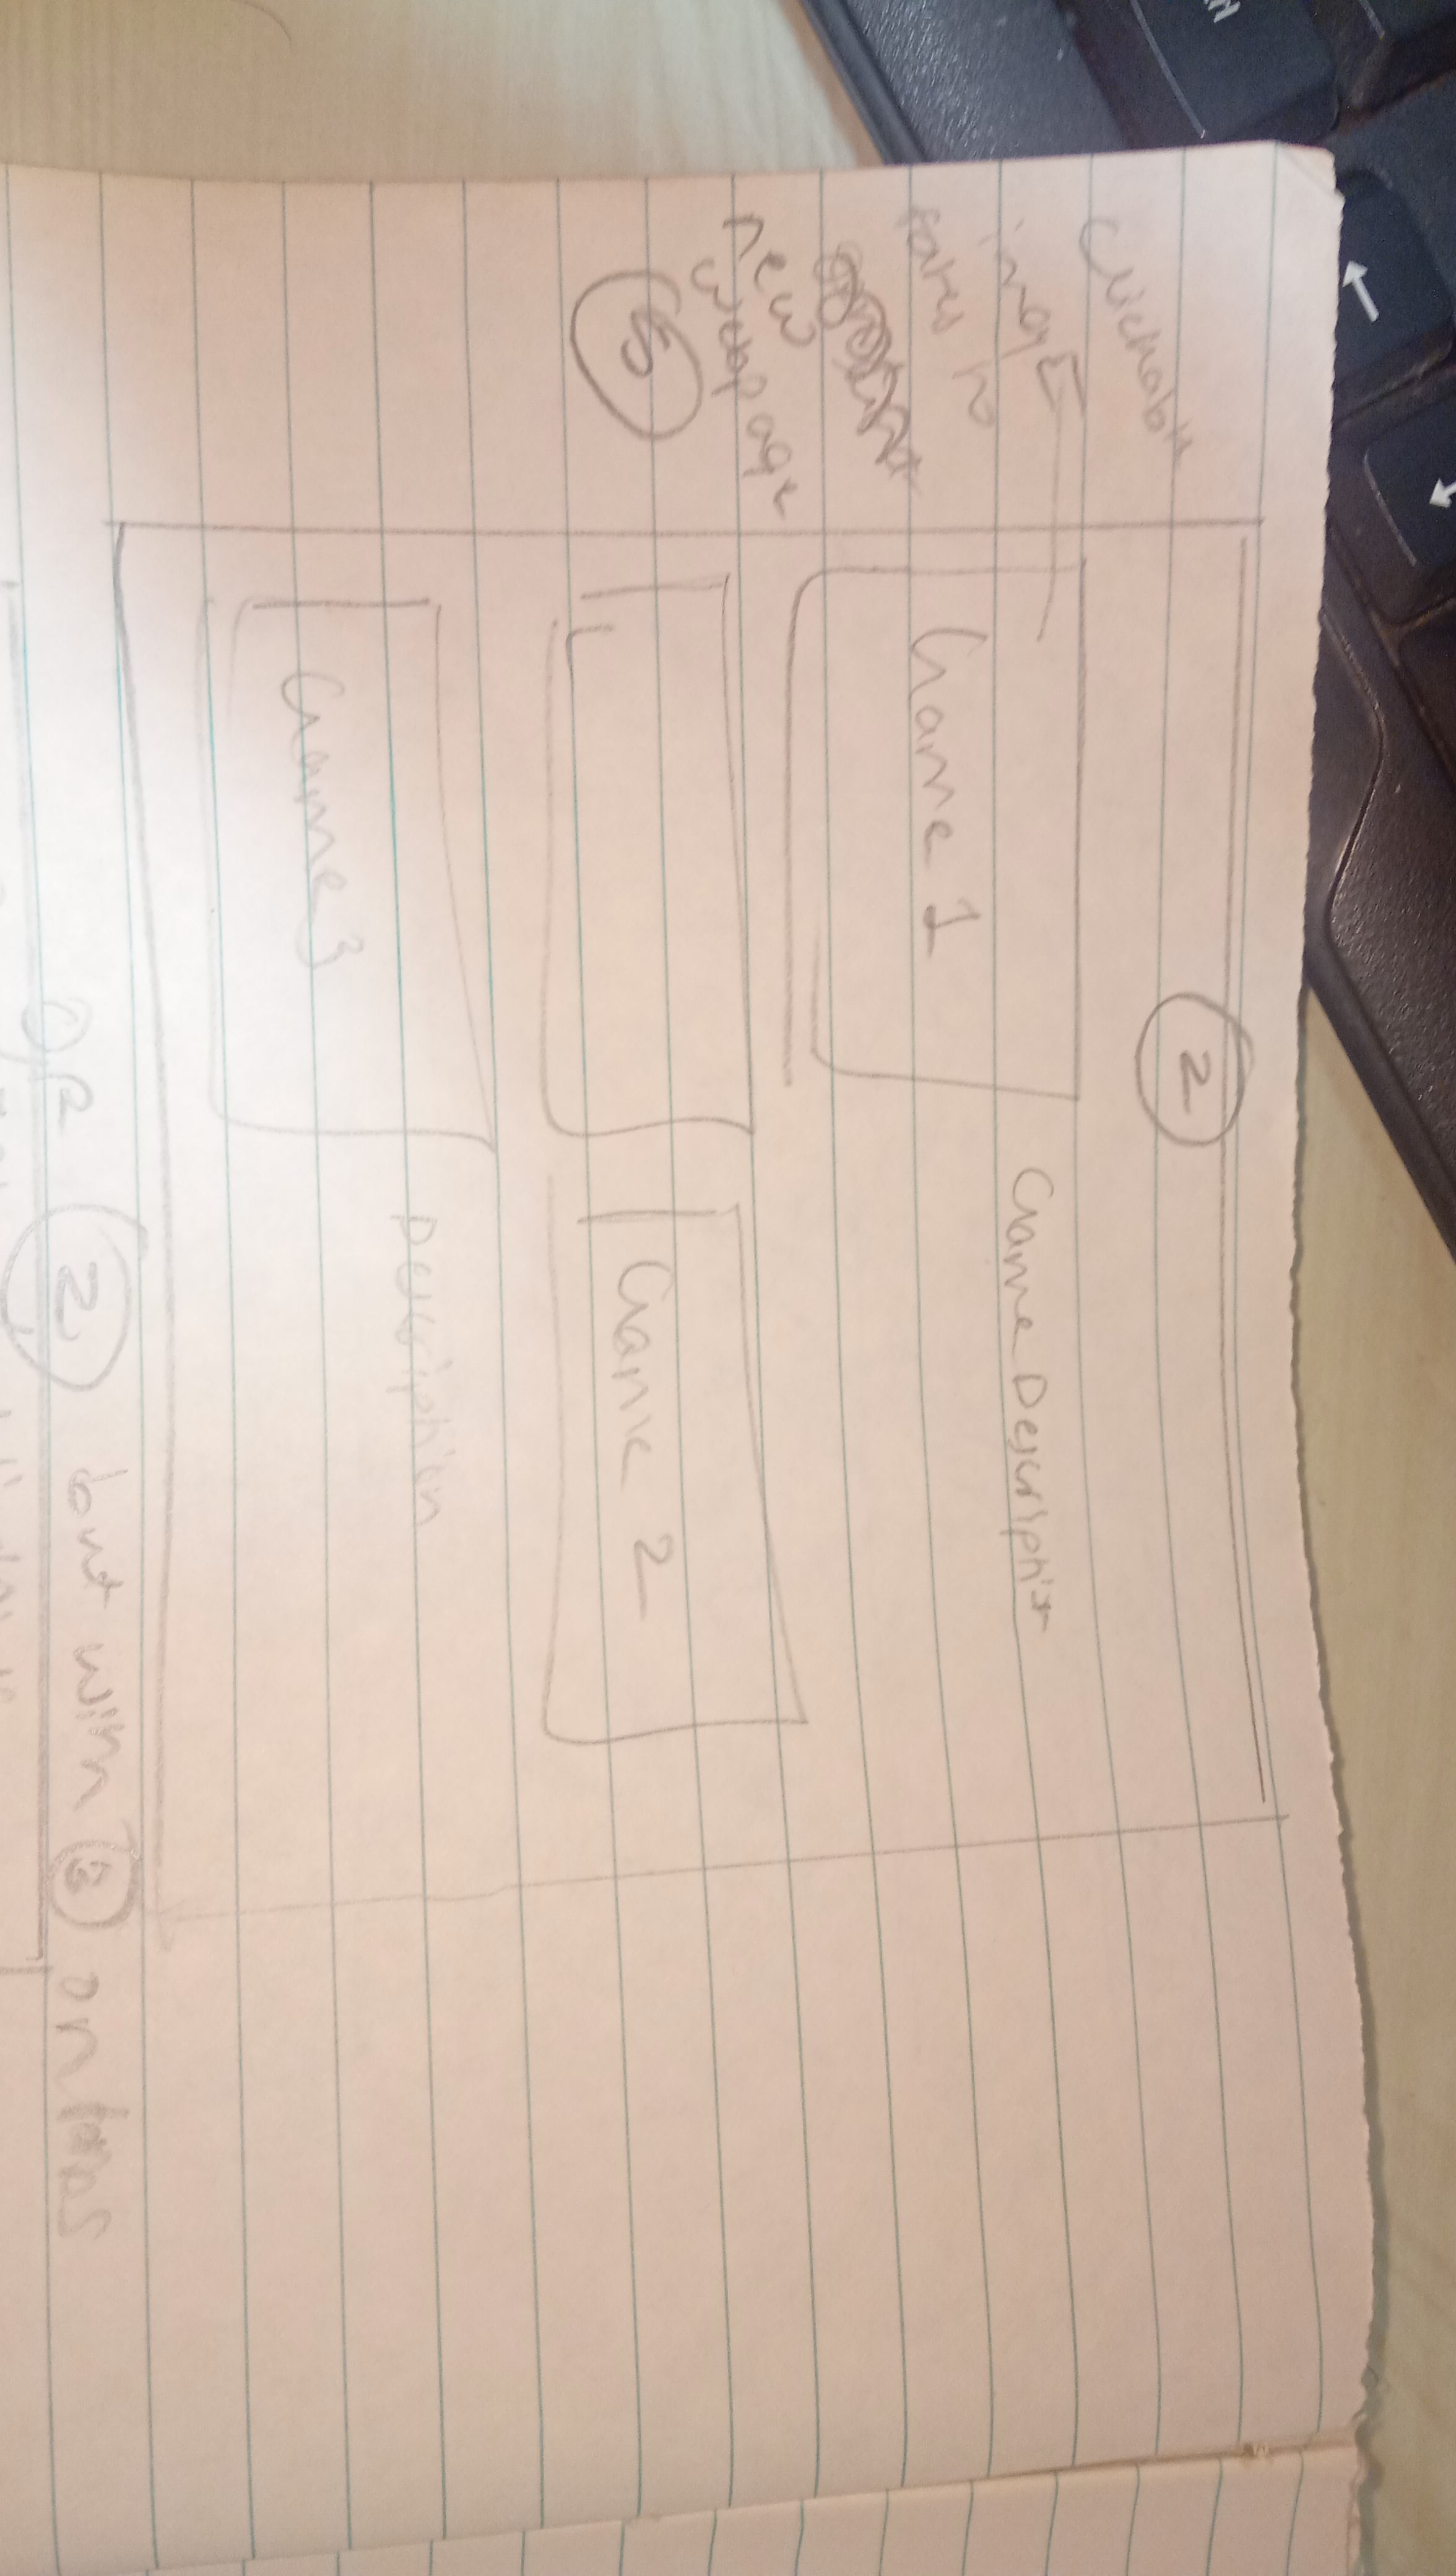 2
Clickable
image
takes to
new
webpage
5
Game 1
Game Description
Game 2
Game 3
Description
OR 2 but with